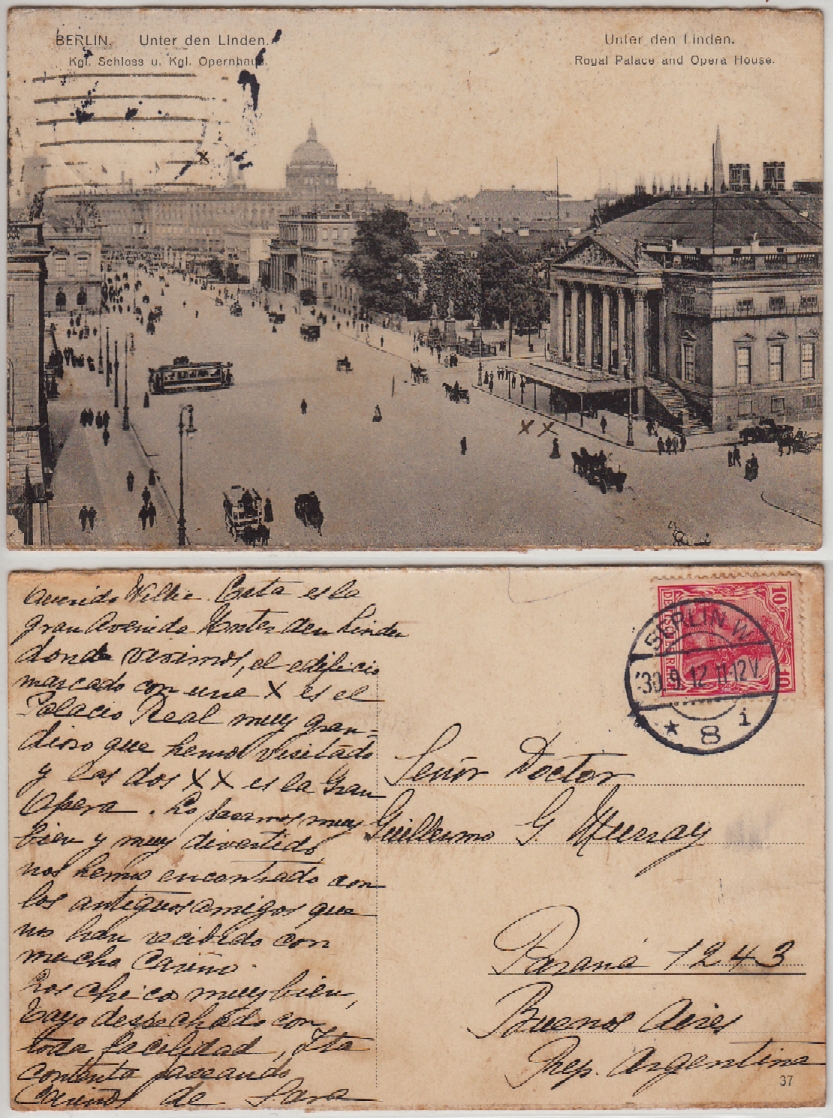 BERLIN. Unter den Linden.
Kgl. Schloss u. Kgl. Opernhaus.
Unter den Linden.
Royal Palace and Opera House.
X
X X
Querido Willie. Esta es la
gran Avenida Unter den Linden
donde vivimos, el edificio
marcado con una X es el
Palacio Real muy gran-
dioso que hemos visitado
y las dos XX es la Gran
Opera. Lo pasamos muy
bien y muy divertido
nos hemos encontrado con
los antiguos amigos que
nos han recibido con
mucho cariño.
Los chico muy bien,
con
toda facilidad,
contenta paseando
Cariños de Sara
DEUTSCHES REICH
10 10
BERLIN W.
30.9.12.11-12V.
* 8 i
Señor Doctor
Guillermo G. Murray
Paraná 1243
Buenos Aires
Rep. Argentina
37